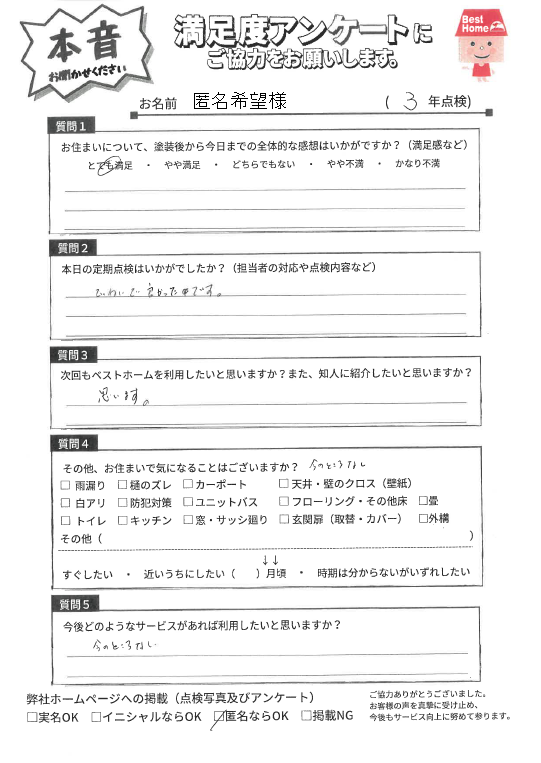 本音
お聞かせください
満足度アンケートに
ご協力をお願いします。
Best Home
お名前 匿名希望様 ( 3 年点検)
質問1
お住まいについて、塗装後から今日までの全体的な感想はいかがですか?(満足感など)
とても満足 ・ やや満足 ・ どちらでもない ・ やや不満 ・ かなり不満
質問2
本日の定期点検はいかがでしたか?(担当者の対応や点検内容など)
ていねいで良かったです。
質問3
次回もベストホームを利用したいと思いますか?また、知人に紹介したいと思いますか?
思います。
質問4
その他、お住まいで気になることはございますか? 今のところなし
□ 雨漏り □ 樋のズレ □ カーポート □ 天井・壁のクロス(壁紙)
□ 白アリ □ 防犯対策 □ ユニットバス □ フローリング・その他床 □畳
□ トイレ □ キッチン □ 窓・サッシ廻り □ 玄関扉(取替・カバー) □外構
その他( )
↓↓
すぐしたい ・ 近いうちにしたい( )月頃 ・ 時期は分からないがいずれしたい
質問5
今後どのようなサービスがあれば利用したいと思いますか?
今のところなし
弊社ホームページへの掲載(点検写真及びアンケート)
□実名OK □イニシャルならOK ☑匿名ならOK □掲載NG
ご協力ありがとうございました。
お客様の声を真摯に受け止め、
今後もサービス向上に努めて参ります。